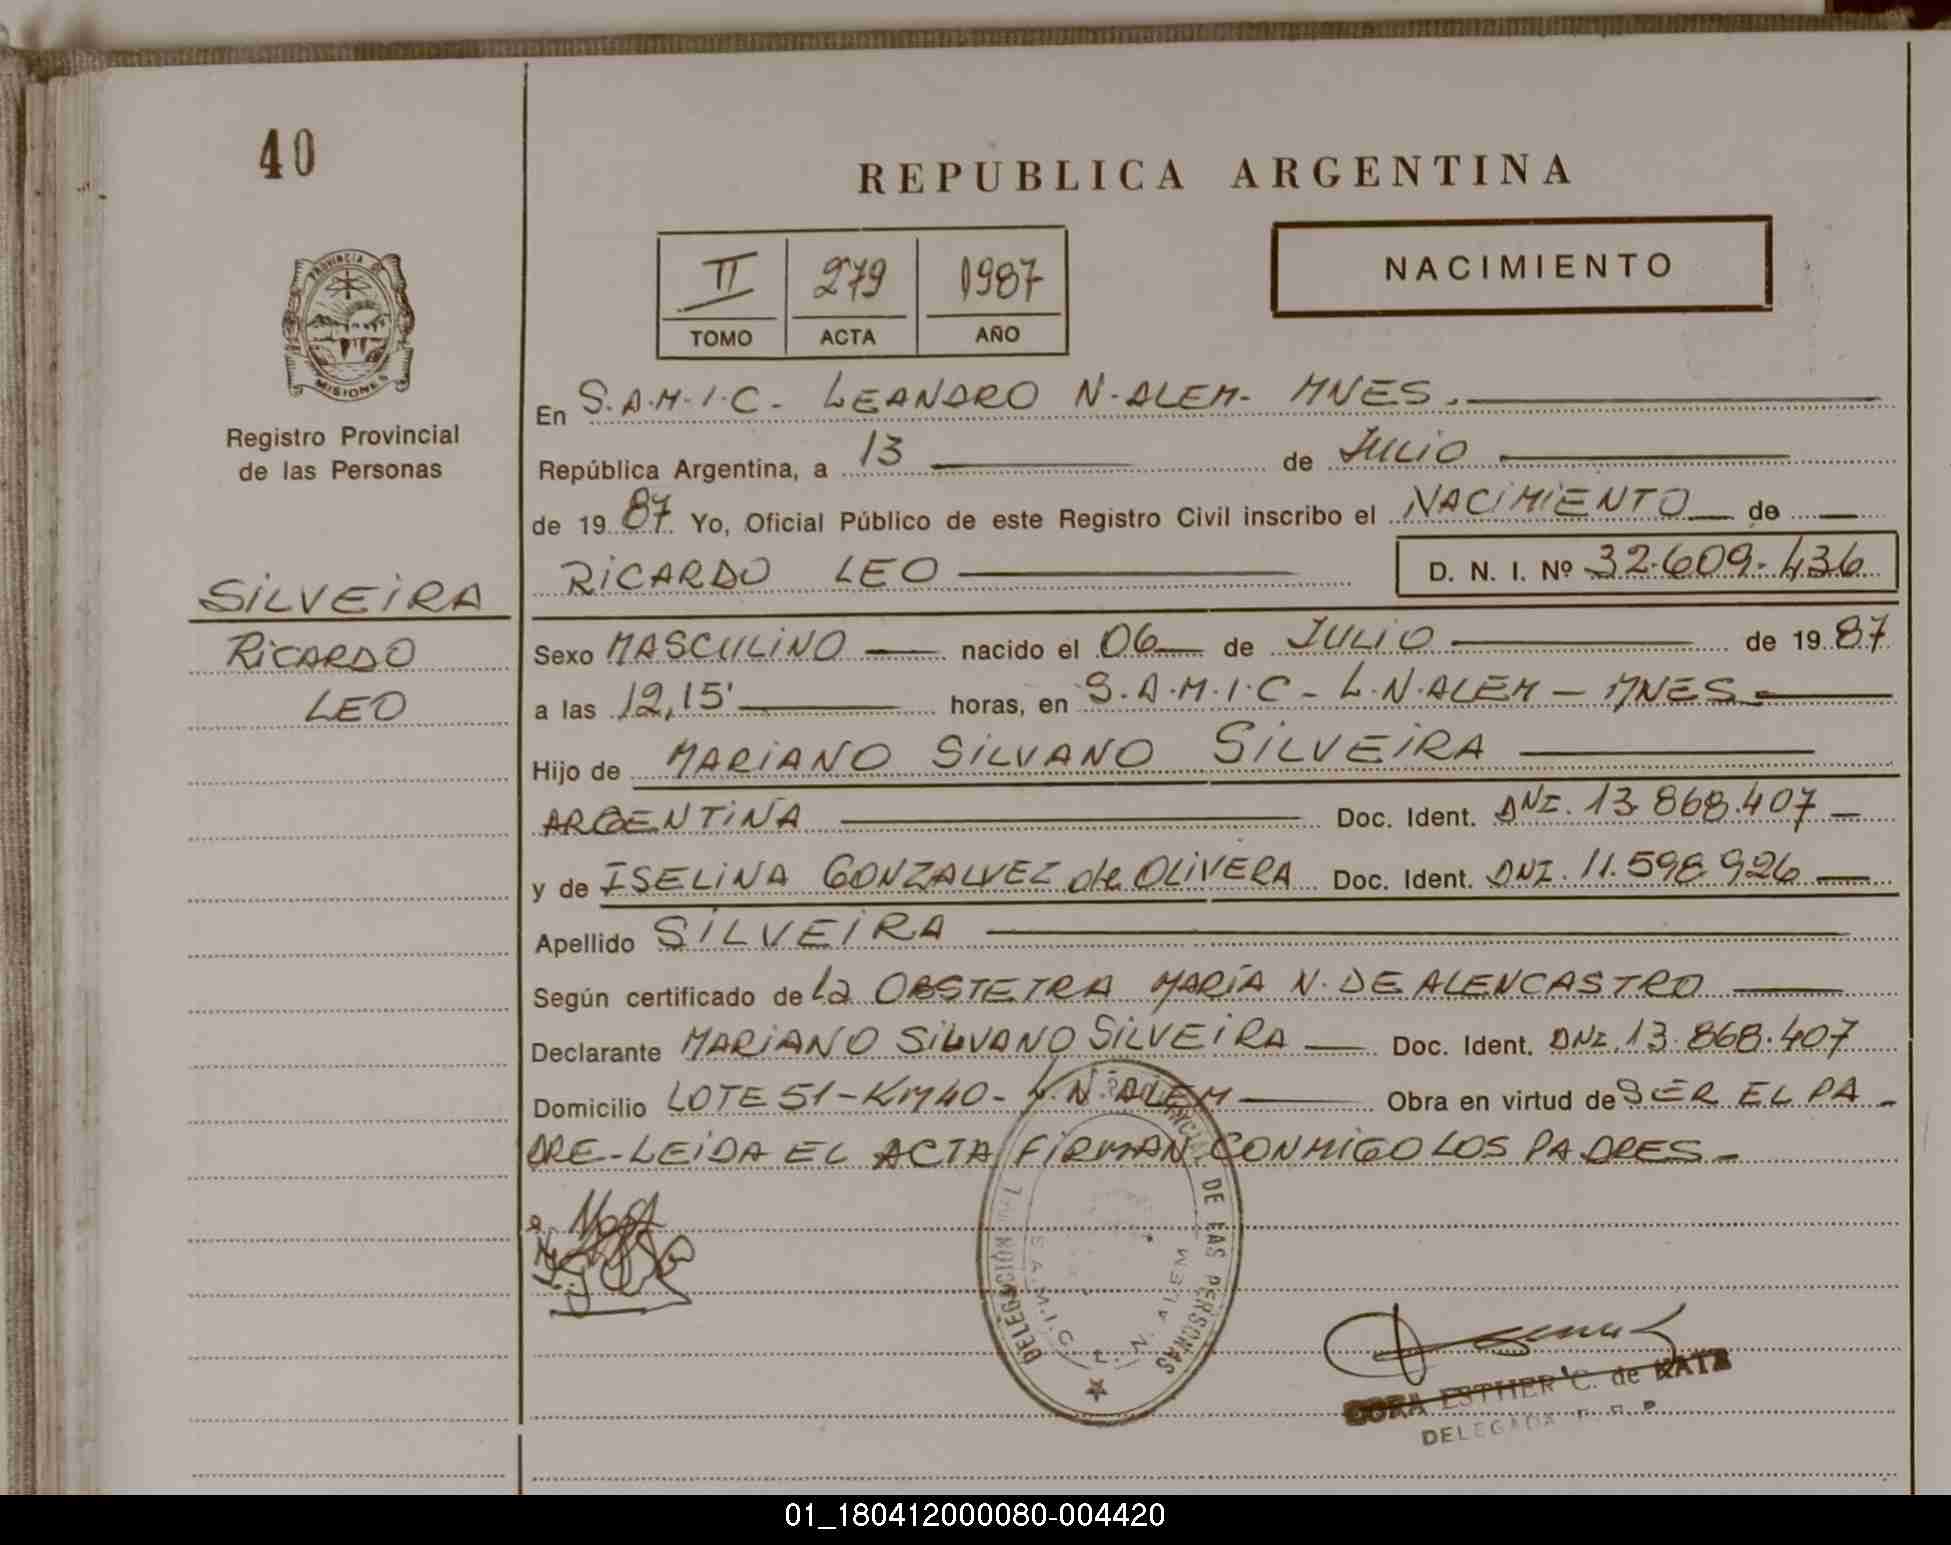 40
REPUBLICA ARGENTINA
II 279 1987
TOMO ACTA AÑO
NACIMIENTO
PROVINCIA DE
MISIONES
Registro Provincial
de las Personas
SILVEIRA
RICARDO
LEO
En S.A.M.I.C. LEANDRO N. ALEM - MNES.
República Argentina, a 13 de JULIO
de 1987 Yo, Oficial Público de este Registro Civil inscribo el NACIMIENTO de
RICARDO LEO D. N. I. Nº 32.609.436
Sexo MASCULINO nacido el 06 de JULIO de 1987
a las 12,15' horas, en S.A.M.I.C - L.N.ALEM - MNES
Hijo de MARIANO SILVANO SILVEIRA
ARGENTINA Doc. Ident. DNI. 13.868.407
y de ISELINA GONZALVEZ de OLIVERA Doc. Ident. DNI. 11.598.926
Apellido SILVEIRA
Según certificado de la OBSTETRA MARÍA N. DE ALENCASTRO
Declarante MARIANO SILVANO SILVEIRA Doc. Ident. DNI. 13.868.407
Domicilio LOTE 51 - KM 40 - L.N. ALEM Obra en virtud de SER EL PA-
DRE - LEIDA EL ACTA FIRMAN CONMIGO LOS PADRES -
DE LAS PERSONAS
DELEGACION
S.A.M.I.C. L. N. ALEM
ESTHER C. de KATZ
DELEGADA
01_180412000080-004420